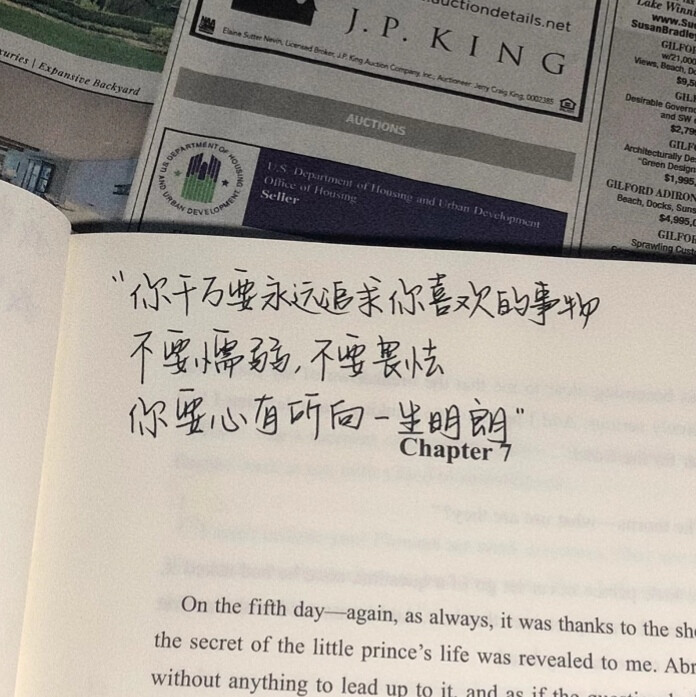 uctiondetails.net
J.P. KING
Elaine Sutter Nevin, Licensed Broker, J.P. King Auction Company, Inc., Auctioneer: Jerry Craig King, 0002385
uries | Expansive Backyard
AUCTIONS
U.S. DEPARTMENT OF HOUSING AND URBAN DEVELOPMENT
U.S. Department of Housing and Urban Development
Office of Housing
Seller
Lake Winni
www.Su
SusanBradley
GILFO
w/21,000
Views, Beach, Do
$9,5
GIL
Desirable Governo
and SW
$2,79
GILF
Architecturally De
"Green Design
$1,995,
GILFORD ADIRON
Beach, Docks, Suns
$4,995,0
GILFO
Sprawling Cust
"你千万要永远追求你喜欢的事物
不要懦弱,不要畏怯
你要心有所向一生明朗"
Chapter 7
On the fifth day—again, as always, it was thanks to the she
the secret of the little prince's life was revealed to me. Abr
without anything to lead up to it, and as if the question